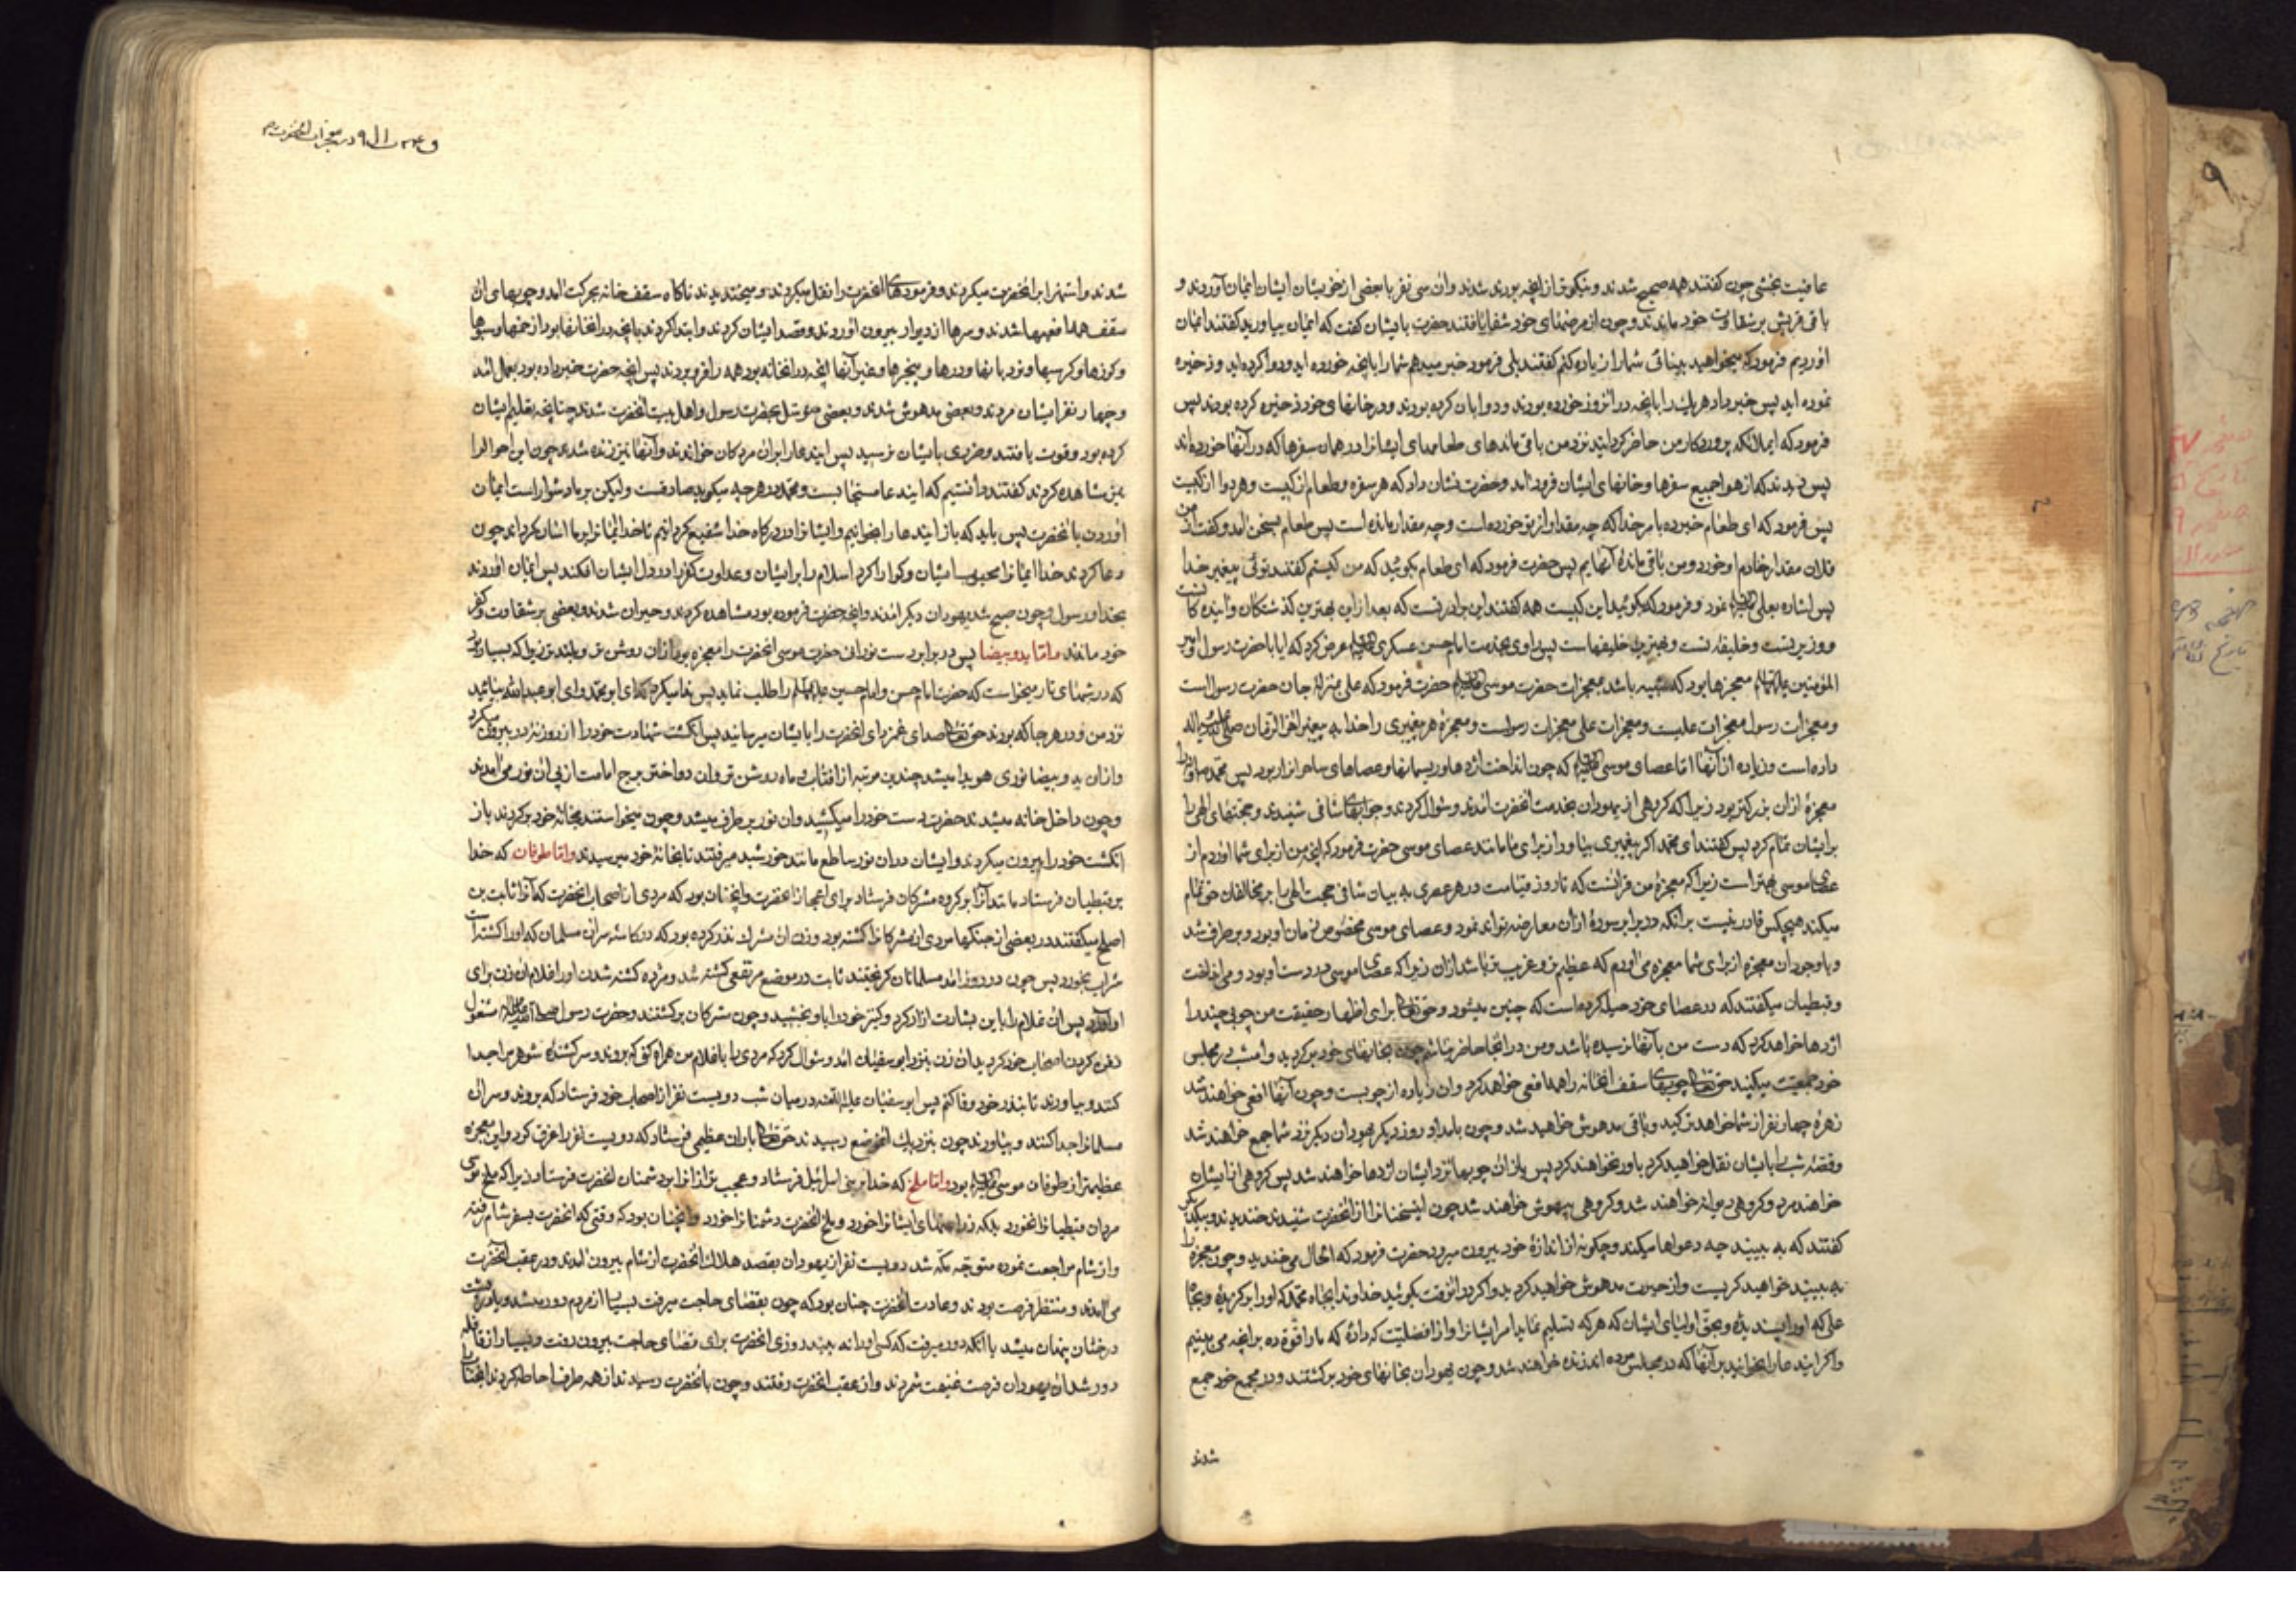 عافیت بخشی چون کفتند همه صحیح شدند و نیکوتر از انچه بودند شدند وان سی نفر با بعضی از خویشان ایشان ایمان آوردند و
باقی قریش بر شقاوت خود ماندند و چون از مرضهای خود شفا یافتند حضرت بایشان کفت که ایمان بیاورید کفتند ایمان
اوردیم فرمود که میخواهید بینائی شما را زیاده کنم کفتند بلی فرمود خبر میدهم شما را بانچه خورده اید ودوا کرده اید و ذخیره
نموده اید پس خبر داد هر یک را بانچه در انروز خورده بودند و دوا بان کرده بودند و در خانهای خود ذخیره کرده بودند پس
فرمود که ایملائکه پروردکار من حاضر کردانید نزد من باقی ماندهای طعامهای ایشانرا در همان سفرها که در آنها خورده‌اند
پس دیدند که از هوا جمیع سفرها و خانهای ایشان فرود امد و حضرت نشان داد که هر سفره و طعام از کیست و هر دوا از کیست
پس فرمود که ای طعام خبر ده بامر خدا که چه مقدار از تو خورده است و چه مقدار مانده است پس طعام بسخن امد و کفت از من
فلان مقدار خادم او خورد و من باقی مانده آنهایم پس حضرت فرمود که ای طعام بکوئید که من کیستم کفتند توئی پیغمبر خدا
پس اشاره بعلی نمود و فرمود که بکوئید این کیست همه کفتند این برادر تست که بعد از این بهترین کذشتکان و اینده کانست
ووزیر تست و خلیفه تست و بهترین خلیفهاست پس راوی بخدمت امام حسن عسکری عرض کرد که ایا با حضرت رسول و امیر
المؤمنین معجزها بود که شبیه باشد بمعجزات حضرت موسی حضرت فرمود که علی بمنزله جان حضرت رسول است
ومعجزات رسول معجزات علیست و معجزات علی معجزات رسولست و معجزه هر پیغمبری را خدا به پیغمبر اخر الزمان صلی الله علیه واله
داده است و زیاده از آنها اما عصای موسی که چون انداخت اژدها و ریسمانها و عصاهای ساحرانرا ربود پس محمد را
معجزه ازان بزرکتر بود زیرا که کروهی از یهودان بخدمت انحضرت امدند و سؤال کردند و جوابهای شافی شنیدند و حجتهای الهی را
بر ایشان تمام کرد پس کفتند ای محمد اکر پیغمبری بیاور از برای ما مانند عصای موسی حضرت فرمود که انچه من از برای شما اوردم از
عصای موسی بهتر است زیرا که معجزه من قرآنست که تا روز قیامت در هر عصری به بیان شافی حجت الهی را بر مخالفان تمام
میکند هیچکس قادر نیست بر آنکه در برابر سوره ازان معارضه تواند نمود و عصای موسی مخصوص زمان او بود و بر طرف شد
و باوجود ان معجزه از برای شما معجزه می اورم که عظیم تر و غریب تر باشد ازان زیرا که عصای موسی در دست او بود و می انداخت
و قبطیان میکفتند که در عصای خود حیله کرده است که چنین میشود و حق تعالی برای اظهار حقیقت من چوبی چند را
اژدها خواهد کرد که دست من بآنها نرسیده باشد و من در انجا حاضر نباشم چون بخانهای خود برکردید و امشب در مجلس
خود جمعیت میکنید حق تعالی چوبهای سقف انخانه را همه افعی خواهد کرد وان زیاده از چوبست و چون آنها افعی خواهند شد
زهره چهار نفر از شما خواهد ترکید و باقی مدهوش خواهید شد و چون بامداد روز دیکر یهودان دیکر نزد شما جمع خواهند شد
وقصه شب را بایشان نقل خواهید کرد باور نخواهند کرد پس باز ان چوبها نزد ایشان اژدها خواهند شد پس کروهی از ایشان
خواهند مرد و کروهی دیوانه خواهند شد و کروهی بیهوش خواهند شد چون اینسخنانرا از انحضرت شنیدند خندیدند و بیکدیکر
کفتند که به بینید چه دعواها میکند و چکونه از اندازه خود بیرون میرود حضرت فرمود که الحال می خندید و چون معجزه را
به بینید خواهید کریست و از حیرت مدهوش خواهید کردید واکر در انوقت بکوئید خداوندا بجاه محمد که اورا برکزیدۀ و بجاه
علی که اورا پسندیدۀ و بحق اولیای ایشان که هر که تسلیم نماید امر ایشانرا اورا فضیلت دادۀ که ما را قوّة ده بر انچه می بینیم
واکر ایندعا را بخوانید بر آنها که در مجلس مرده اند زنده خواهند شد و چون یهودان بخانهای خود برکشتند و در مجمع خود جمع
شدند
در معجزات انحضرت
شدند و استهزا بر انحضرت میکردند و فرمودهای انحضرت را نقل میکردند و میخندیدند ناکاه سقف خانه بحرکت امد و چوبهای ان
سقف همه افعیها شدند و سرها از دیوار بیرون اوردند و قصد ایشان کردند و ابتدا کردند بانچه در انخانها بود از خمها و سبوها
وکوزها و کرسیها و نردبانها و درها و پنجرها و غیر آنها انچه در انخانه بود همه را فرو بردند پس انچه حضرت خبر داده بود بعمل امد
وچهار نفر ایشان مردند و بعضی مدهوش شدند و بعضی متوسّل بحضرت رسول و اهل بیت انحضرت شدند چنانچه تعلیم ایشان
کرده بود و قوت یافتند و ضرری بایشان نرسید پس ایندعا را بران مردکان خواندند و آنها نیز زنده شدند چون این احوال را
مشاهده کردند کفتند دانستیم که ایندعا مستجابست و محمد در هر چه میکوید صادقست و لیکن بر ما دشوار است ایمان
اوردن بانحضرت پس باید که باز ایندعا را بخوانیم و ایشانرا در درکاه خدا شفیع کردانیم تا خدا ایمانرا بر ما اسان کرداند چون
دعا کردند خدا ایمانرا محبوب ایشان و کوارا کرد اسلام را برایشان و عداوت کفر را در دل ایشان افکند پس ایمان اوردند
بخدا و رسول و چون صبح شد یهودان دیکر امدند و انچه حضرت فرموده بود مشاهده کردند و حیران شدند و بعضی بر شقاوت و کفر
خود ماندند و امّا ید و بیضا پس در برابر دست نورانی حضرت موسی انحضرت را معجزه بود ازان روشن تر و بلند تر زیرا که بسیار بود
که در شبهای تار میخواست که حضرت امام حسن و امام حسین را طلب نماید پس ندا میکرد که ای ابو محمد و ای ابو عبد الله بیائید
نزد من و در هر جا که بودند حق تعالی صدای انحضرت را بایشان میرسانید پس انکشت شهادت خود را از روزنه در بیرون میکرد
وازان ید و بیضا نوری هویدا میشد چندین مرتبه از افتاب و ماه روشن تر وان دو اختر برج امامت از پی ان نور می آمدند
وچون داخل خانه میشدند حضرت دست خود را میکشید وان نور بر طرف میشد و چون میخواستند بخانه خود برکردند باز
انکشت خود را بیرون میکردند و ایشان دران نور ساطع مانند خورشید میرفتند تا بخانۀ خود میرسیدند و امّا طوفان که خدا
بر قبطیان فرستاد مانند آنرا بر کروه مشرکان فرستاد برای اعجاز انحضرت و انچنان بود که مردی از اصحاب انحضرت که آنرا ثابت بن
اصلح میکفتند در بعضی از جنکها مردی از مشرکانرا کشته بود و زن ان مشرک نذر کرده بود که در کاسه سر ان مسلمان که اورا کشته است
شراب بخورد پس چون در روز احد مسلمانان کریختند ثابت در موضع مرتفعی کشته شد و مژده کشته شدن اورا غلام ان زن برای
او آورد پس ان غلام را باین بشارت ازاد کرد و کنیز خود را باو بخشید و چون مشرکان برکشتند و حضرت رسول مشغول
دفن کردن اصحاب خود کردید ان زن بنزد ابو سفیان امد و سؤال کرد که مردی را با غلام من همراه کن که بروند و سر کشنده شوهر مرا جدا
کنند و بیاورند تا بنذر خود وفا کنم پس ابو سفیان علیه اللعنه در میان شب دویست نفر از اصحاب خود فرستاد که بروند و سر ان
مسلمانرا جدا کنند و بیاورند چون بنزدیک انموضع رسیدند حق تعالی باران عظیمی فرستاد که دویست نفر را غرق کرد و این معجزه
عظیمتر از طوفان موسی بود و امّا ملخ که خدا بر بنی اسرائیل فرستاد و عجیب تر ازانرا بر دشمنان انحضرت فرستاد زیرا که ملخ موسی
مردان قبطیانرا نخورد بلکه زراعتهای ایشانرا خورد و ملخ انحضرت دشمنانرا خورد و انچنان بود که وقتی که انحضرت بسفر شام رفته
واز شام مراجعت نموده متوجّه مکّه شد دویست نفر از یهودان بقصد هلاک انحضرت از شام بیرون امدند و در عقب انحضرت
می امدند و منتظر فرصت بودند و عادت انحضرت چنان بود که چون بقضای حاجت میرفت بسیار از مردم دور میشد و یا در پشت
درختان پنهان میشد یا انکه دور میرفت که کسی اورا نه بیند روزی انحضرت برای قضای حاجت بیرون رفت و بسیار از قافله
دور شد ان یهودان فرصت غنیمت شمردند و از عقب انحضرت رفتند و چون بانحضرت رسیدند از همه طرف احاطه کردند انجناب را